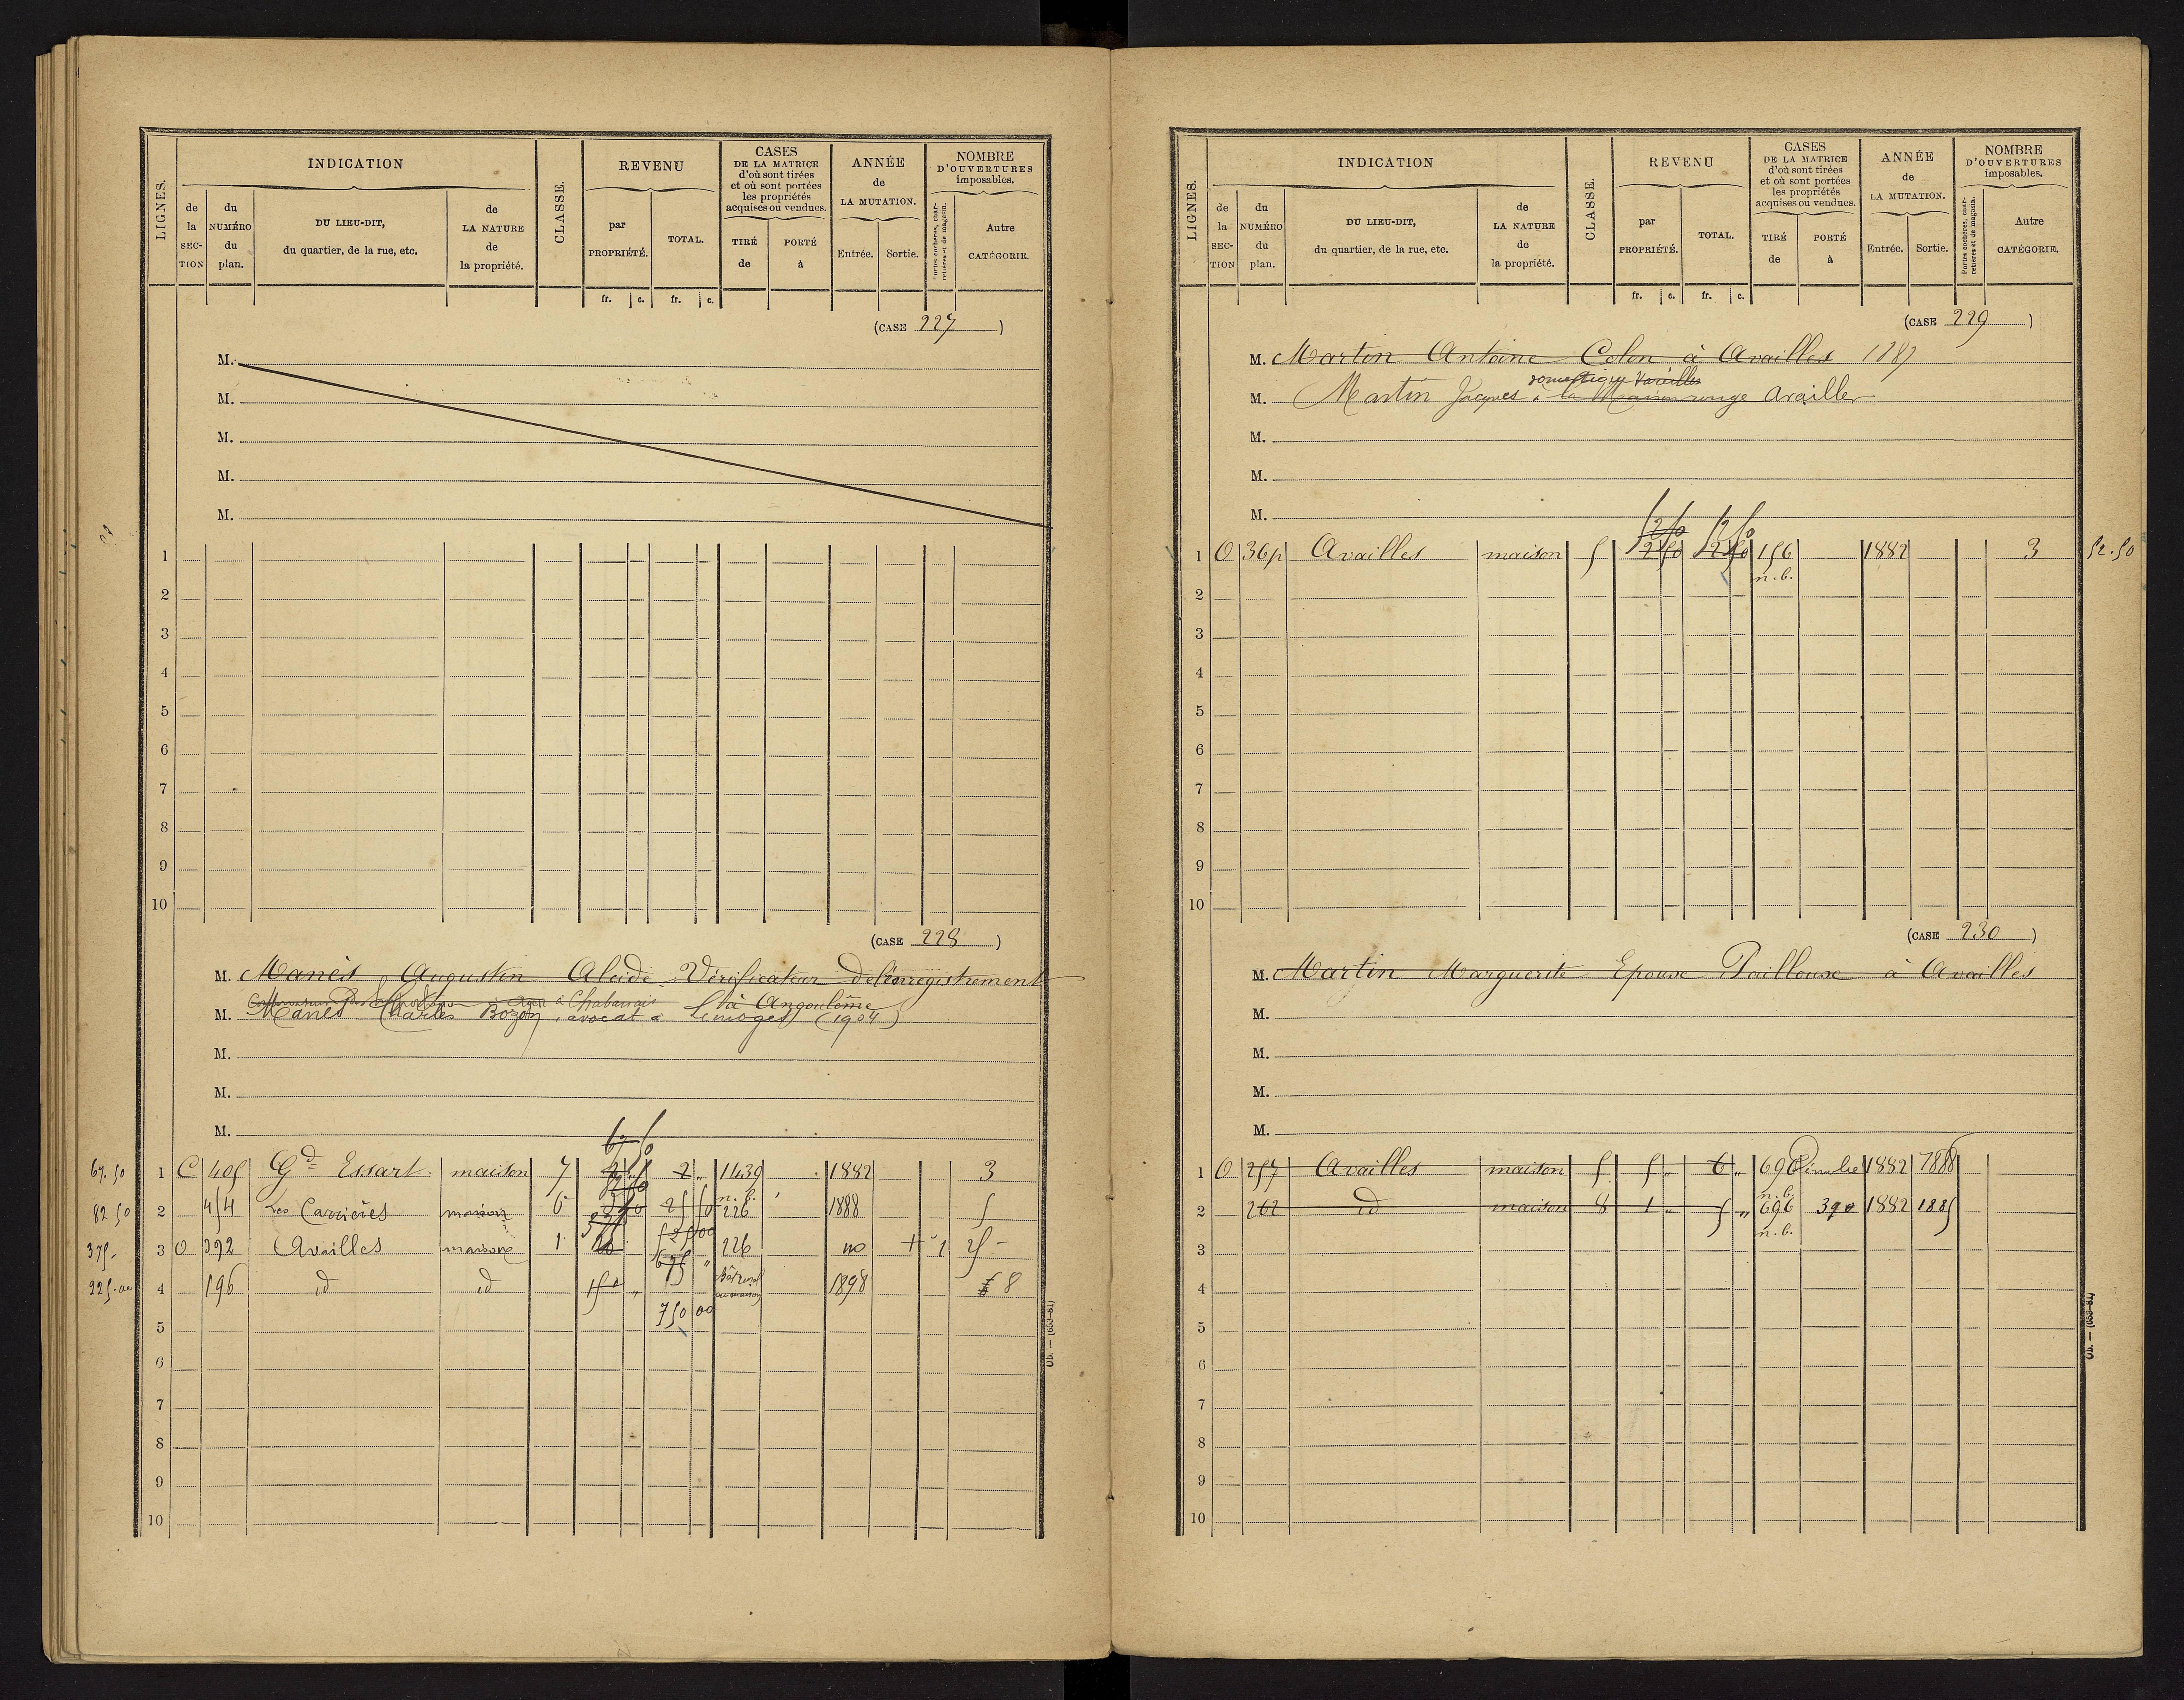 LIGNES.
INDICATION
de la SEC-TION
du NUMÉRO du plan.
DU LIEU-DIT,
du quartier, de la rue, etc.
de LA NATURE de la propriété.
CLASSE.
REVENU
par PROPRIÉTÉ.
TOTAL.
fr. c. fr. c.
CASES
DE LA MATRICE
d'où sont tirées
et où sont portées
les propriétés
acquises ou vendues.
TIRÉ de
PORTÉ à
ANNÉE
de
LA MUTATION.
Entrée. Sortie.
NOMBRE
D'OUVERTURES
imposables.
Portes cochères, charretières et de magasin.
Autre
CATÉGORIE.
(CASE 227)
M.
M.
M.
M.
M.
1
2
3
4
5
6
7
8
9
10
(CASE 228)
M. Manès Augustin Alcide Vérificateur de l'enregistrement
à Chabanais à Angoulême
M. Manès Charles Bozon, avocat à Limoges (1904)
M.
M.
M.
67 50
67.50 1 C 405 Gd Essart maison 7 2 " 1439 1882 3
n. b.
82 50 2 454 Les Carrières maison 6 25 50 226 1888 5
375 - 3 O 392 Availles maison 1 525 00 226 no + 1 25 -
675 "
225.00 4 196 id id 15 " 1898 8
750 00
5
6
7
8
9
10
Ob. — (653-81)
LIGNES.
INDICATION
de la SEC-TION
du NUMÉRO du plan.
DU LIEU-DIT,
du quartier, de la rue, etc.
de LA NATURE de la propriété.
CLASSE.
REVENU
par PROPRIÉTÉ.
TOTAL.
fr. c. fr. c.
CASES
DE LA MATRICE
d'où sont tirées
et où sont portées
les propriétés
acquises ou vendues.
TIRÉ de
PORTÉ à
ANNÉE
de
LA MUTATION.
Entrée. Sortie.
NOMBRE
D'OUVERTURES
imposables.
Portes cochères, charretières et de magasin.
Autre
CATÉGORIE.
(CASE 229)
M. Martin Antoine Colon à Availles 1887
domestique Vareilles
M. Martin Jacques à la Maison rouge Availles
M.
M.
M.
52 50 52 50
1 O 36p Availles maison 5 2 50 2 50 156 1882 3 52.50
n. b.
2
3
4
5
6
7
8
9
10
(CASE 230)
M. Martin Marguerite Epouse Paillouse à Availles
M.
M.
M.
M.
1 O 257 Availles maison 5 5 " 6 " 696 1882 1888
n. b.
2 262 id maison 8 1 " 5 " 696 390 1882 1885
n. b.
3
4
5
6
7
8
9
10
Ob. — (653-81)